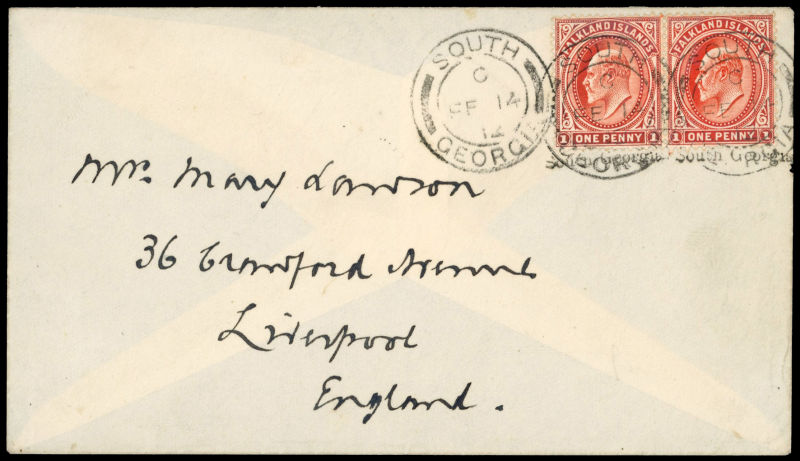 SOUTH
C
FE 14
12
GEORGIA
FALKLAND ISLANDS
FALKLAND ISLANDS
1 ONE PENNY 1
1 ONE PENNY 1
South Georgia
Mrs. Mary Lawson
36 Crawford Avenue
Liverpool
England.